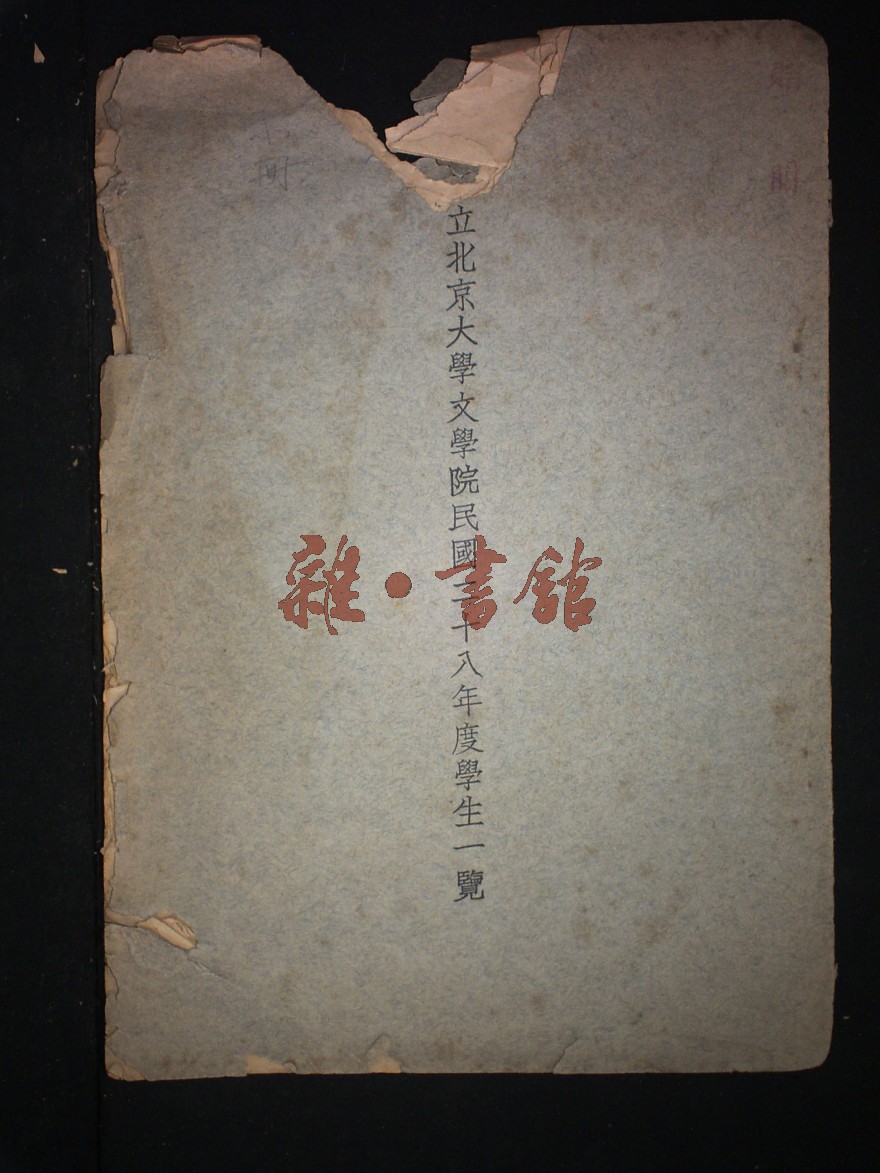 立北京大學文學院民國二十八年度學生一覽
雜·書館